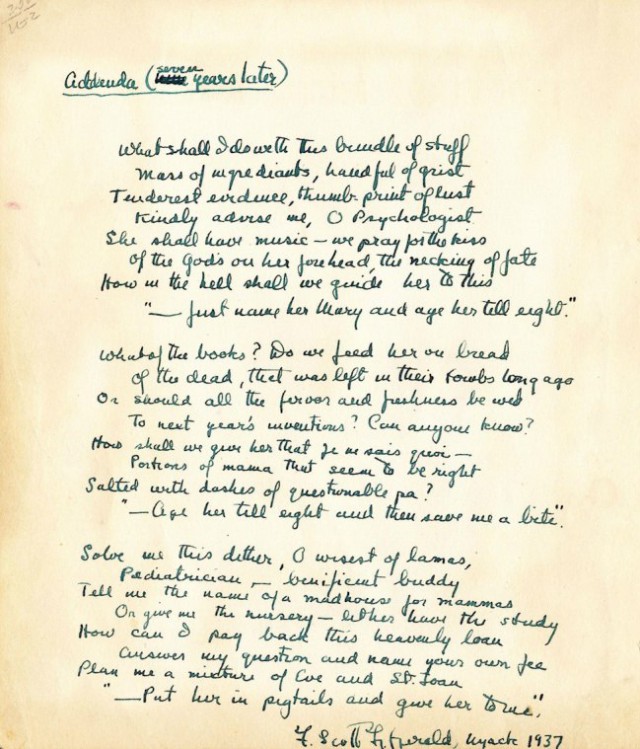 Addenda (seven years later)
What shall I do with this bundle of stuff
Mass of ingrediants, handful of grist
Tenderest evidence, thumb-print of lust
Kindly advise me, O Psychologist
She shall have music — we pray for the kiss
of the God's on her forehead, the necking of fate
How in the hell shall we guide her to this
"— Just name her Mary and age her till eight."
What of the books? Do we feed her on bread
of the dead, that was left in their tombs long ago
Or should all the fervor and freshness be wed
To next year's inventions? Can anyone know?
How shall we give her that je ne sais quoi —
Portions of mama that seem to be right
Salted with dashes of questionable pa?
"— Age her till eight and then save me a bite".
Solve me this dither, O wisest of lamas,
Pediatrician — benificent buddy
Tell me the name of a madhouse for mammas
Or give me the nursery — let her have the study
How can I pay back this heavenly loan
Answer my question and name your own fee
Plan me a mixture of Eve and St. Joan
"— Put her in pigtails and give her to me".
F. Scott Fitzgerald, Nyack 1937